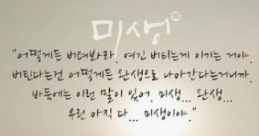 미생
"어떻게든 버텨봐라. 여긴 버티는게 이기는 거야.
버틴다는건 어떻게든 완생으로 나아간다는거니까.
바둑에는 이런 말이 있어. 미생... 완생...
우린 아직 다... 미생이야."